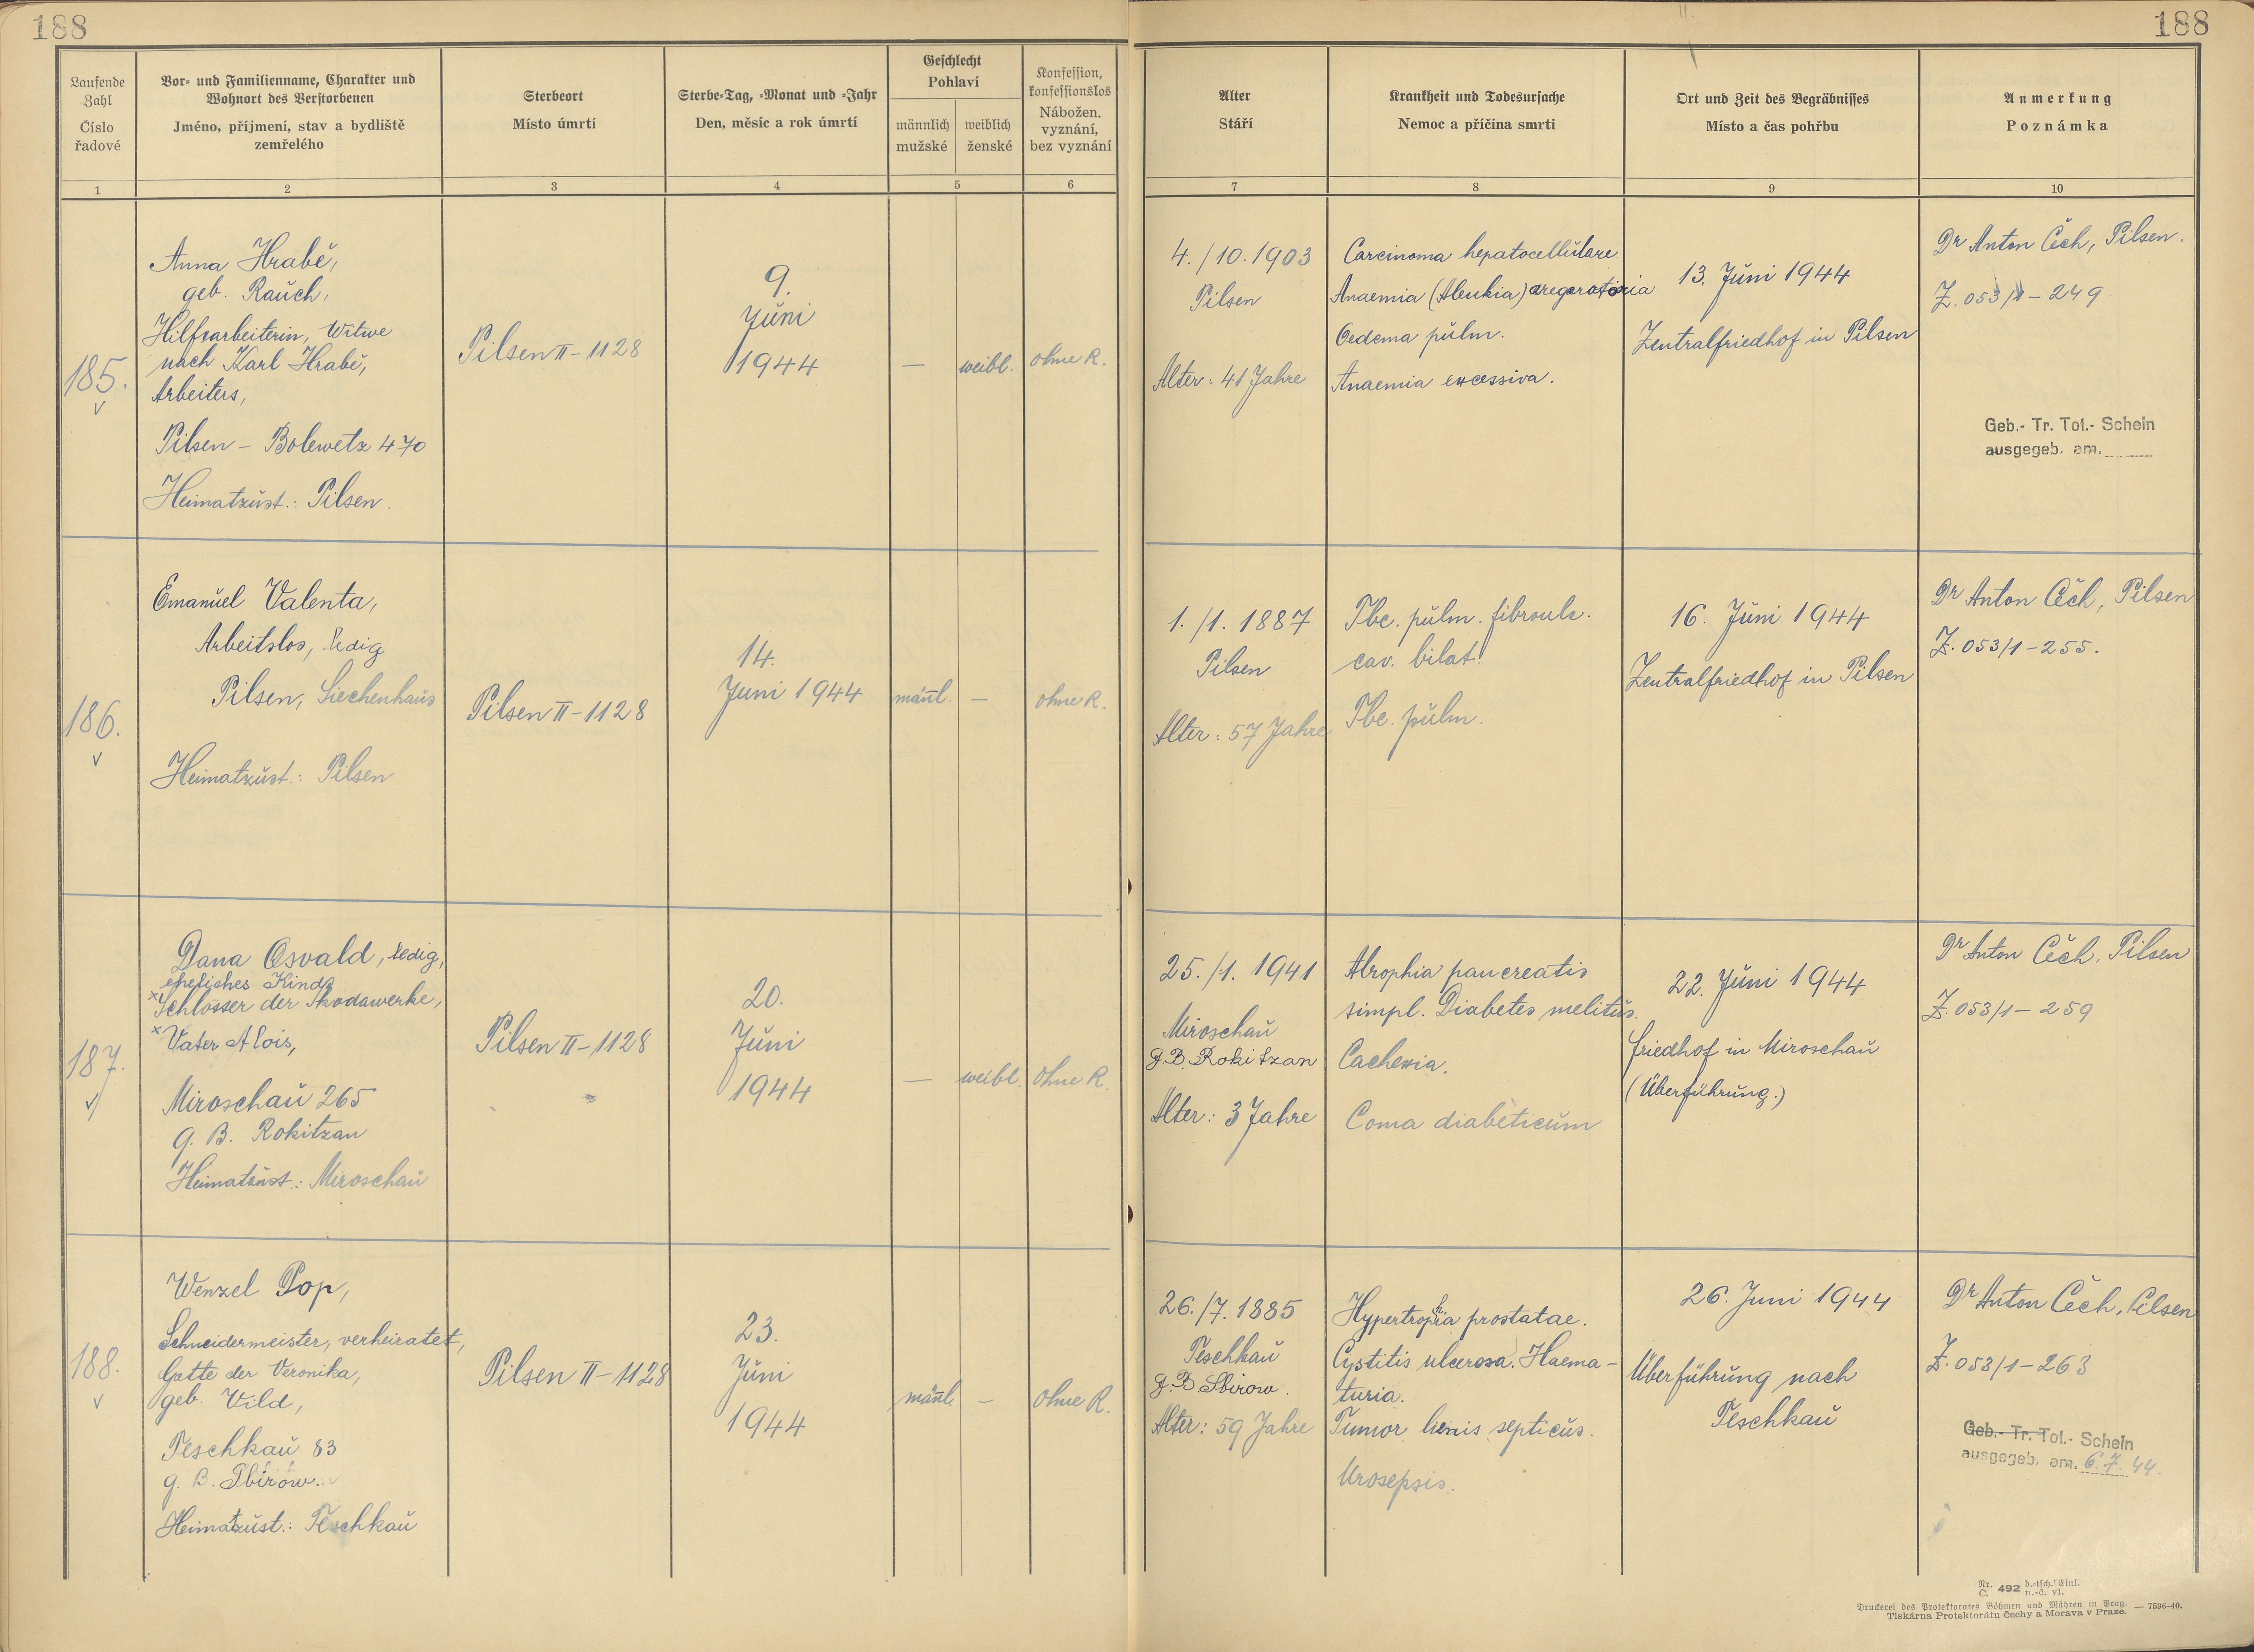 188
188
Laufende Zahl
Číslo řadové
Vor- und Familienname, Charakter und
Wohnort des Verstorbenen
Jméno, příjmení, stav a bydliště
zemřelého
Sterbeort
Místo úmrtí
Sterbe-Tag, -Monat und -Jahr
Den, měsíc a rok úmrtí
Geschlecht
Pohlaví
männlich
mužské
weiblich
ženské
Konfession,
konfessionslos
Nábožen.
vyznání,
bez vyznání
Alter
Stáří
Krankheit und Todesursache
Nemoc a příčina smrti
Ort und Zeit des Begräbnisses
Místo a čas pohřbu
Anmerkung
Poznámka
1 2 3 4 5 6 7 8 9 10
185.
Anna Hrabě,
geb. Rauch,
Hilfsarbeiterin, Witwe
nach Karl Hrabě,
Arbeiters,
Pilsen – Bolewetz 470
Heimatzust.: Pilsen.
Pilsen II – 1128
9.
Juni
1944
—
weibl.
ohne R.
4./10. 1903
Pilsen
Alter: 41 Jahre
Carcinoma hepatocellulare.
Anaemia (Aleukia)
Oedema pulm.
Anaemia excessiva.
13. Juni 1944
Zentralfriedhof in Pilsen
Dr Anton Čech, Pilsen.
Z. 053/1 – 249
Geb.- Tr. Tot.- Schein
ausgegeb. am.
186.
Emanuel Valenta,
Arbeitslos, ledig
Pilsen, Siechenhaus
Heimatzust.: Pilsen
Pilsen II – 1128
14.
Juni 1944
männl.
—
ohne R.
1./1. 1887
Pilsen
Alter: 57 Jahre
Tbc. pulm. fibroulc.
cav. bilat.
Tbc. pulm.
16. Juni 1944
Zentralfriedhof in Pilsen
Dr Anton Čech, Pilsen
Z. 053/1 – 255.
187.
Dana Osvald, ledig,
eheliches Kind
×Schlosser der Skodawerke,
×Vater Alois,
Miroschau 265
G. B. Rokitzan
Heimatzust.: Miroschau
Pilsen II – 1128
20.
Juni
1944
—
weibl.
ohne R.
25./1. 1941
Miroschau
G. B. Rokitzan
Alter: 3 Jahre
Atrophia pancreatis
simpl. Diabetes melitus.
Cachexia.
Coma diabeticum
22. Juni 1944
Friedhof in Miroschau
(Überführung.)
Dr Anton Čech, Pilsen
Z. 053/1 – 259
188.
Wenzel Pop,
Schneidermeister, verheiratet,
Gatte der Veronika,
geb. Vild,
Teschkau 83
G. B. Sbirow.
Heimatzust.: Teschkau
Pilsen II – 1128
23.
Juni
1944
männl.
—
ohne R.
26./7. 1885
Teschkau
G. B. Sbirow.
Alter: 59 Jahre
Hypertrophia prostatae.
Cystitis ulcerosa. Haema-
turia.
Tumor lienis septicus.
Urosepsis.
26. Juni 1944
Überführung nach
Teschkau
Dr Anton Čech, Pilsen
Z. 053/1 – 263
Geb.- Tr. Tot.- Schein
ausgegeb. am. 6.7.44.
Nr. Č. 492 d.-tsch. Einl. n.-č. vl.
Druckerei des Protektorates Böhmen und Mähren in Prag. — 7596-40.
Tiskárna Protektorátu Čechy a Morava v Praze.